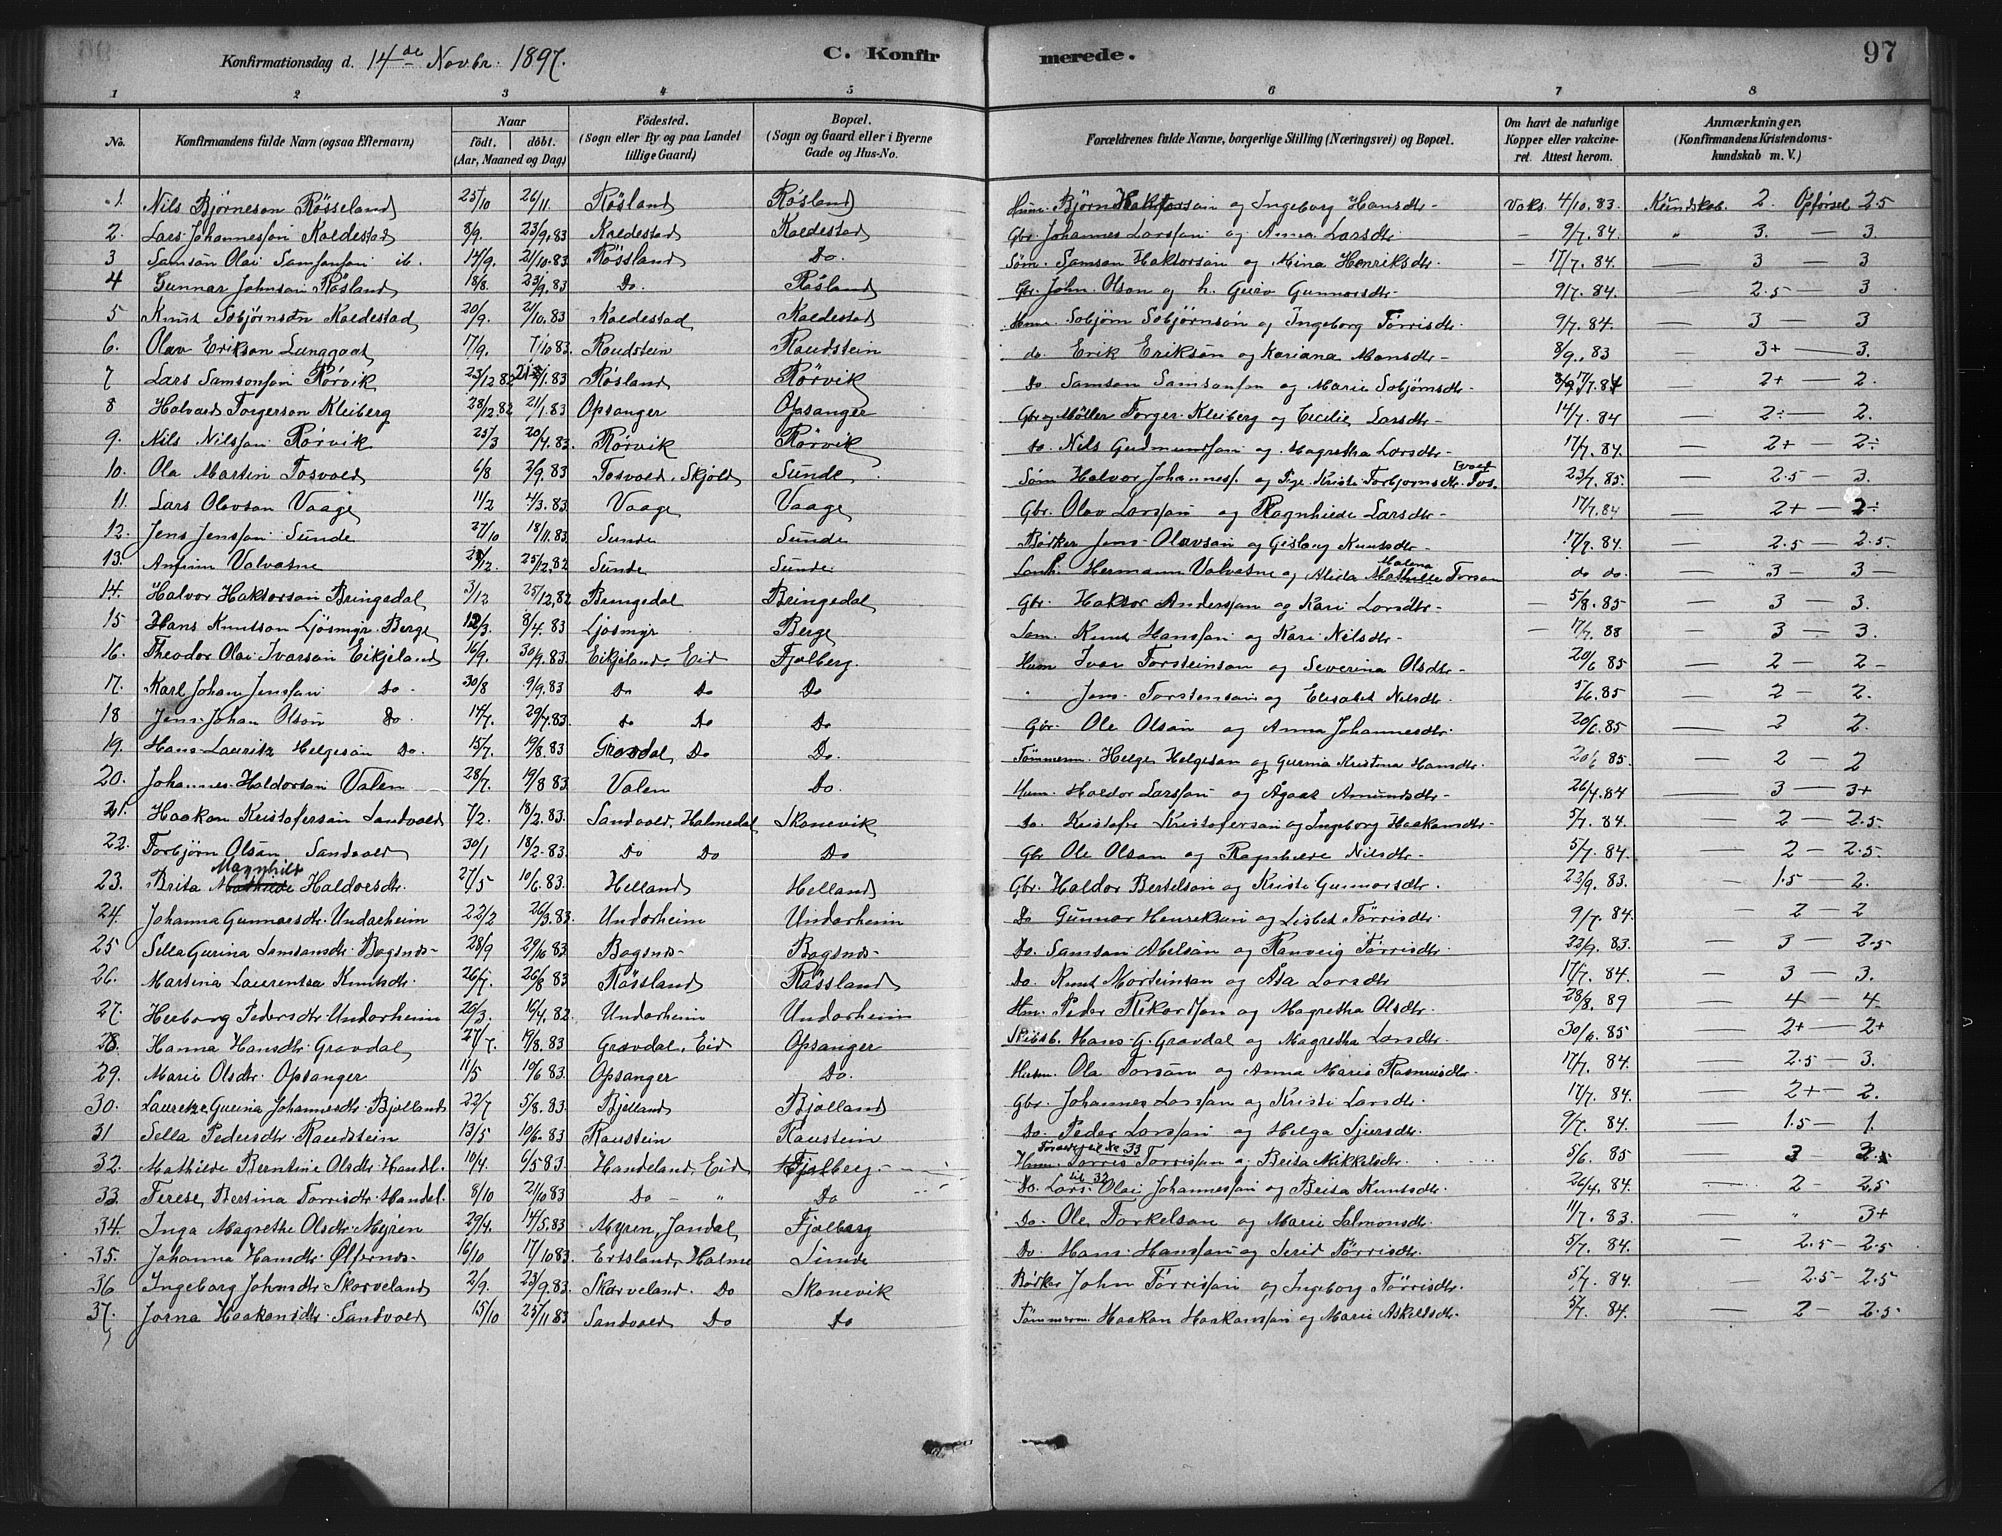 Konfirmationsdag d. 14de Novbr. 1897. C. Konfirmerede. 97
1 2 3 4 5 6 7 8
No. Konfirmandens fulde Navn (ogsaa Efternavn) Naar födt. döbt. (Aar, Maaned og Dag) Födested. (Sogn eller By og paa Landet tillige Gaard) Bopæl. (Sogn og Gaard eller i Byerne Gade og Hus-No. Forældrenes fulde Navne, borgerlige Stilling (Næringsvei) og Bopæl. Om havt de naturlige Kopper eller vakcineret. Attest herom. Anmærkninger, (Konfirmandens Kristendomskundskab m. V.)
1. Nils Bjørneson Røsseland 25/10 26/11. Røsland Røsland Hum. Bjørn Haktorson og Ingeborg Hansdtr Vaks. 4/10.83. Kundskab 2. Opførsel 2.5
2. Lars Johannesson Kaldestad 8/9. 23/9.83 Kaldestad Kaldestad Gbr. Johannes Larsson og Anna Larsdtr. 9/7.84. " 3. — 3.
3 Samson Olai Samsonson ib. 14/9. 21/10.83 Røssland Do. Søm. Samson Haktorson og Mina Henriksdtr. 17/7.84. — 3 — 3
4 Gunnar Johnson Røsland 18/8. 23/9.83 Do. Røsland Gbr. John Olson og h. Guro Gunnarsdtr. 9/7.84. — 2.5 — 3.
5 Knut Sobjørnson Kaldestad 20/9. 21/10.83 Kaldestad Kaldestad Hum. Sobjørn Sobjørnson og Ingeborg Tørrisdtr. 9/7.84. — 3 — 3
6. Olav Erikson Lunggaat 17/9. 7/10 83. Raudstein Raudstein do. Erik Erikson og Kariana Monsdtr 8/9.83 — 3+ — 3.
7 Lars Samsonson Rørvik 23/12 82 /1.83 Røsland Rørvik Do Samson Samsonson og Marie Sobjørnsdtr 17/7.84 — 2+ — 2.
8 Halvard Torgerson Kleiberg 28/12.82 21/1.83 Opsanger Opsanger Gbr og Møller Torger Kleiberg og Cecilie Larsdtr 14/7.84 — 2÷ — 2.
9. Nils Nilsson Rørvik 25/3 20/4.83. Rørvik Rørvik Do. Nils Gudmundson og Magretha Larsdtr 17/7.84 — 2+ — 2÷
10. Ola Martin Tosvold 6/8 2/9.83 Tosvold, Skjold Sunde Søm Halvor Johanness. og Pige Kristi Torbjornsdtr. Tosvold 23/7.85 — 2.5 — 3.
11 Lars Olavson Vaage 11/2 4/3.83 Vaage Vaage Gbr. Olav Larsson og Ragnhilde Larsdtr 17/7.84 — 2+ — 2÷
12. Jens Jensson Sunde 27/10 18/11.83 Sunde Sunde Bødker Jens Olavson og Gisborg Knutsdtr 17/7.84. — 2.5 — 2.5.
13. Anfinn Valvatne /12. 25/12.82 Sunde Sunde. Lanh. Hermann Valvatne og Alida Malena Mathilde Torson do do. — 3 — 3
14. Halvor Haktorson Bringedal 3/12 25/12.82 Bringedal Bringedal Gbr. Haktor Anderson og Kari Larsdtr — 5/8.85 — 3 — 3.
15 Hans Knutson Ljosmyr Berge 12/3. 8/4.83 Ljosmyr Berge Søm. Knut Hanson og Kari Nilsdtr — 17/7.88 — 3 — 3.
16. Theodor Olai Ivarson Eikjeland 16/9. 30/9.83. Eikjeland, Eid Fjelberg. Hum Ivar Torsteinson og Severina Olsdtr 20/6 85 — 2 — 2
17. Karl Johan Jensson Do. 30/8 9/9.83 Do Do Do " Jens Torstenson og Elisabet Nilsdtr. 5/6.85 — 2 — 2.
18 Jens Johan Olson Do. 14/7. 29/7.83. Do Do Do Gbr. Ole Olson og Anna Johannesdtr. 20/6.85 — 2 2.
19. Hans Lauritz Helgeson Do. 15/7. 19/8.83 Gravdal, Do Do. Tømmerm. Helge Helgeson og Gurina Kristina Hansdtr. 20/6 85. — 2 — 2
20. Johannes Haldorson Valen 28/7. 19/8 83 Valen Do. Hum. Haldor Larsson og Agaat Amundsdtr 26/4.84 — 3 — 3+
21. Haakon Kristoferson Sandvold 7/2. 18/2.83. Sandvold, Halmedal Skonevik Do. Kristofer Kristoferson og Ingeborg Haakonsdtr 5/7.84. — 2 — 2.5.
22. Torbjørn Olson Sandvold 30/1 18/2.83. Do Do Do Gbr Ole Olson og Ragnhilde Nilsdtr. 5/7.84. — 2 — 2.5.
23. Brita Magnhilt Mathilde Haldorsdtr. 27/5 10/6.83. Helland Helland Gbr. Haldor Bertelson og Kristi Gunnarsdtr. 23/9.83. — 1.5 — 2.
24. Johanna Gunnarsdtr. Undarheim 22/2 26/3.83 Undarheim Undarheim Do Gunnar Henrekson og Lisbet Tørrisdtr. 9/7.84. — 2 — 2
25 Sella Gurina Samsonsdtr. Bogsnes 28/9 29/10 83 Bogsnes Bogsnes Do. Samson Abelson og Ranveig Tørrisdtr. 23/9.83. — 3 — 2.5
26. Martina Laurentza Knutsdtr. 26/7. 26/8 83 Røssland Røssland Do. Knut Morteinson og Åsa Larsdtr 17/7.84. — 3 — 3.
27. Herborg Pedersdtr Undarheim 26/3. 16/4.82. Undarheim Undarheim Hm. Peder Rikorson og Magretha Olsdtr. 28/8.89 — 4 — 4
28. Hanna Hansdtr Gravdal 27/7. 19/8.83 Gravdal, Eid Opsanger Skibsb. Hans G. Gravdal og Magretha Larsdtr. 30/6.85 — 2+ — 2+
29. Marie Olsdtr. Opsanger 11/5 10/6 83. Opsanger Do. Husm. Ola Torson og Anna Marie Rasmusdtr 17/7.84. — 2.5 — 3.
30. Lauretze Gurina Johannesdtr Bjelland 22/7 5/8.83. Bjelland Bjelland Gbr. Johannes Larsson og Kristi Larsdtr. 17/7.84. — 2+ — 2.
31 Sella Pedersdtr Raudstein 13/5 10/6.83 Raustein Raustein Do. Peder Larsson og Helga Sjursdtr. 9/7.84. — 1.5 — 1.
32. Mathilde Berntine Olsdtr. Handl. 10/4. 6/5 83. Handeland, Eid Fjelberg Hum. Tørris Torrison og Brita Mikkelsdtr. 5/6.85 3 — 3
33 Terese Bertina Torrisdtr. Handel. 8/10 21/10 83 Do " Do Do. Lars Olai Johannesson og Brita Knutsdtr. til 32 26/4.84. — 2 — 2.5
34. Inga Magrethe Olsdtr. Myren 29/4. 14/5.83 Myren, Jondal, Fjelberg Do. Ole Torkelson og Marie Salmonsdtr. 11/7.83. — " 3+
35. Johanna Hansdtr. Ølfernes 16/10 17/10 83 Ertsland, Halme Sunde Do. Hans Hansson og Serid Tørrisdtr. 5/7.84. — 2.5 — 2.5
36 Ingeborg Johnsdtr Skorveland 2/9. 23/9.83 Skorveland. Do Skonevik Bødker John Tørrisson og Ingeborg Tørrisdtr. 5/7.84. 2.5 — 2.5
37. Jorna Haakonsdtr Sandvold 15/10 25/11 83 Sandvold Do Do Tømmerm. Haakon Haakonson og Marie Askelsdtr. 5/7.84. — 2 — 2.5